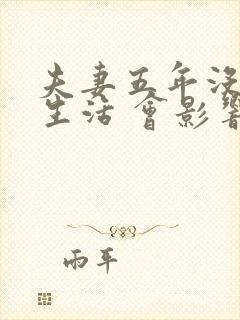 夫妻五年没
生活 會影響
雨平